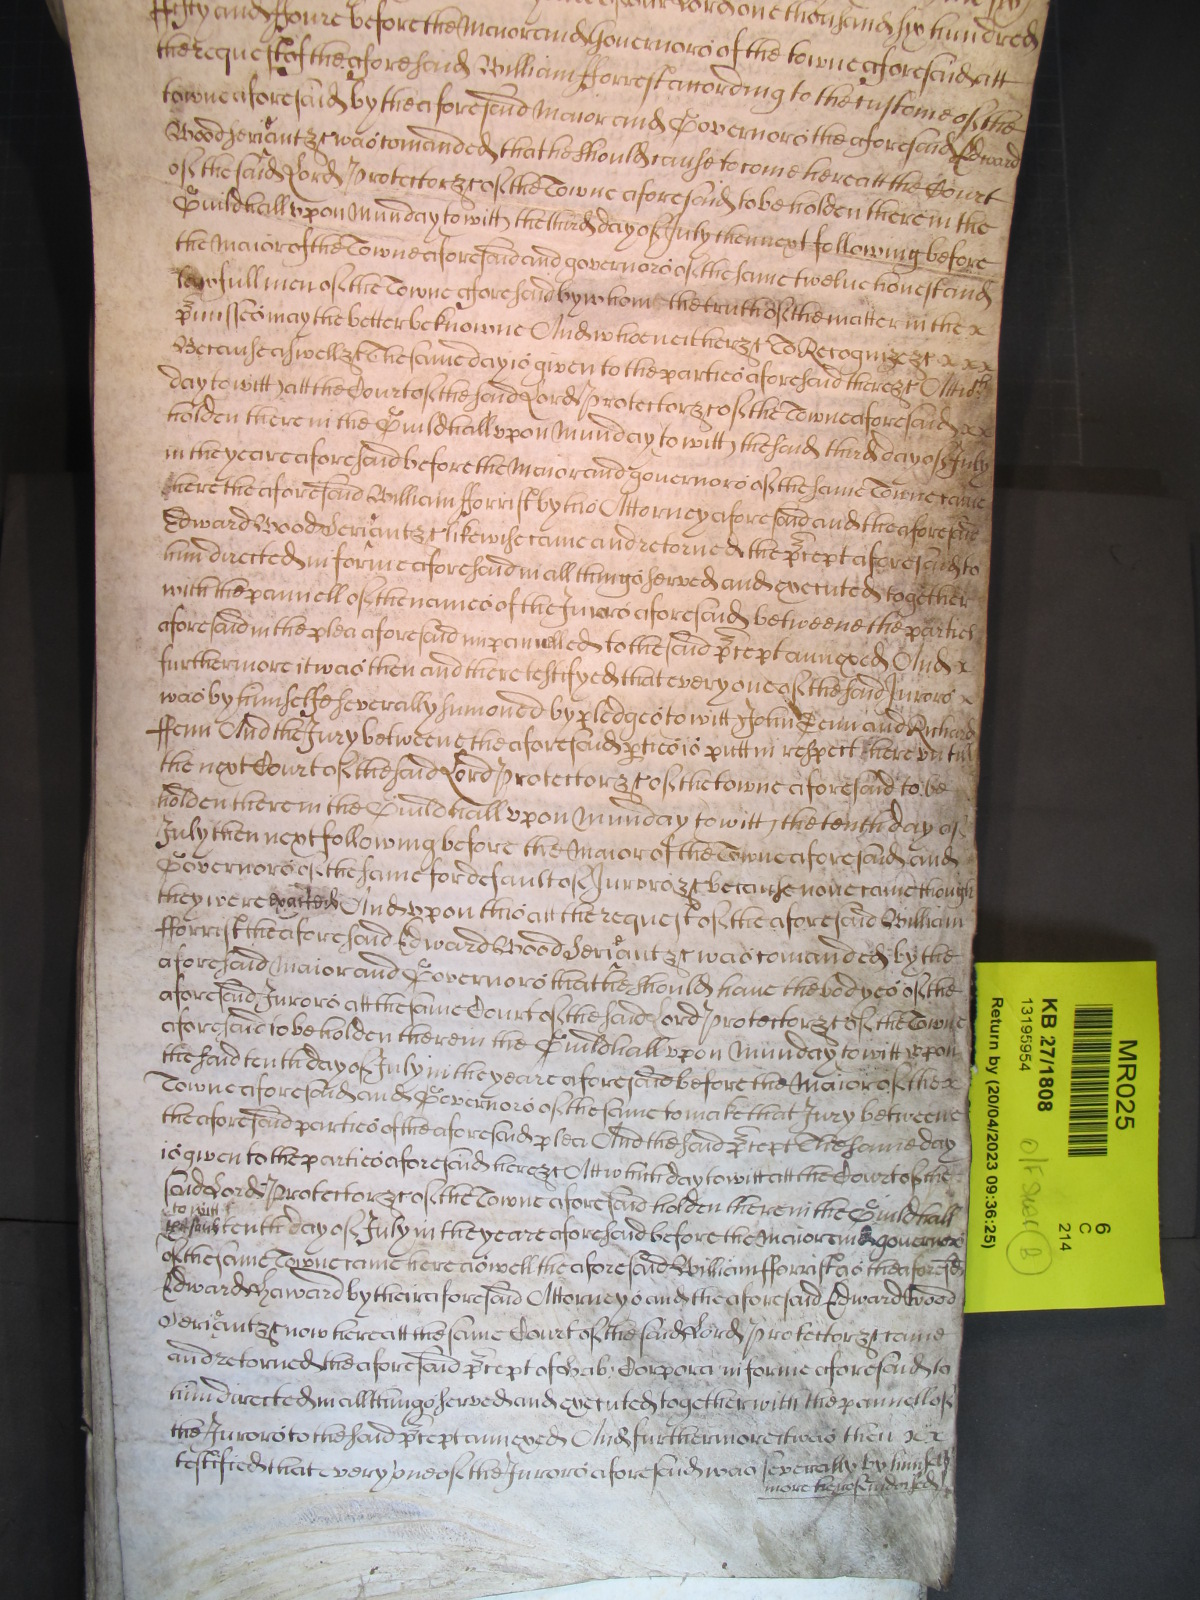 of our Lord one thousand six hundred
ffifty and ffoure before the Maior and Governors of the towne aforesaid att
the request of the aforesaid William fforrest according to the custome of the
towne aforesaid by the aforesaid Maior and Governors the aforesaid Edward
Wood Seriant &c was comanded that he should cause to come here att the Court
of the said Lord Protector &c of the Towne aforesaid to be holden there in the
Guildhall vpon Munday to witt the third day of July then next following before
the Maior of the Towne aforesaid and governors of the same twelue honest and
lawfull men of the Towne aforesaid by whom the truth of the matter in the x
pmisses may the better be knowne And whoe neither &c To Recognize &c x x x
Because aswell &c The same day is given to the parties aforesaid there &c Att wch
day to witt att the Court of the said Lord Protector &c of the Towne aforesaid x x
holden there in the Guildhall vpon Munday to witt the said third day of July
in the yeare aforesaid before the Maior and governors of the same Towne came
here the aforesaid William fforrist by his Attorney aforesaid and the aforesaid
Edward Wood Seriant &c likewise came and retorned the pcept aforesaid to
him directed in forme aforesaid in all things served and executed together
with the pannell of the names of the Jurors aforesaid betweene the parties
aforesaid in the plea aforesaid impannelled to the said pcept annexed And x
furthermore it was then and there testifyed that every one of the said Jurors x
was by himselfe severally sumoned by pledges to witt John Denn and Richard
ffenn And the Jury betweene the aforesaid pties is putt in respect here vntill
the next Court of the said Lord Protector &c of the towne aforesaid to be
holden there in the Guildhall vpon Munday to witt the tenth day of
July then next following before the Maior of the Towne aforesaid and
Governors of the same for default of Jurors &c because none came though
they were exacted And vpon this att the request of the aforesaid William
fforrist the aforesaid Edward Wood Seriant &c was comanded by the
aforesaid Maior and Governors that he should haue the bodyes of the
aforesaid Jurors att the same Court of the said Lord Protector &c of the Towne
aforesaid to be holden there in the Guildhall vpon Munday to witt vpon
the said tenth day of July in the yeare aforesaid before the Maior of the x
Towne aforesaid and Governors of the same to make that Jury betweene
the aforesaid parties of the aforesaid plea And the said pcept The same day
is given to the parties aforesaid here &c Att which day to witt att the Court of the
said Lord Protector &c of the Towne aforesaid holden there in the Guildhall
to witt
the said tenth day of July in the yeare aforesaid before the Maior and governors
of the same Towne came here as well the aforesaid William fforrist as the aforesd
Edward Haward by their aforesaid Attorneys and the aforesaid Edward Wood
Seriant &c now here att the same Court of the said Lord Protector &c came
and retorned the aforesaid pcept of Hab: Corpora in forme aforesaid to
him directed in all things served and executed together with the pannell of
the Jurors to the said pcept annexed And furthermore it was then x x
testified that every one of the Jurors aforesaid was severally by himself
more hereof indorsed
MR025
6
C
214
KB 27/1808
13195954
Return by (20/04/2023 09:36:25)